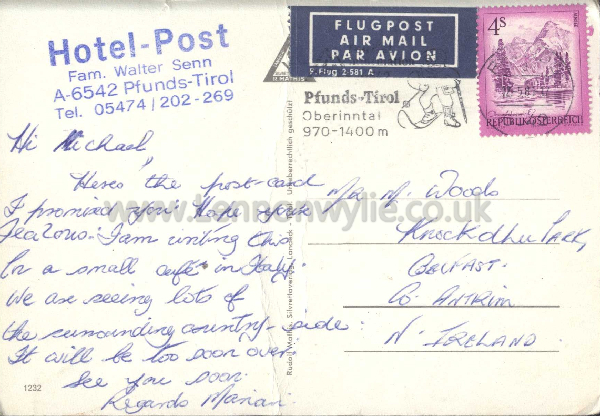 Hotel-Post
Fam. Walter Senn
A-6542 Pfunds-Tirol
Tel. 05474/202-269
FLUGPOST
AIR MAIL
PAR AVION
Pfunds-Tirol
Oberinntal
970-1400m
4S
REPUBLIK ÖSTERREICH
Hi Michael,
Heres the post-card
I promised you. Hope your
Jealous. I am writing this
In a small café in Italy.
We are seeing lots of
the surrounding country-side.
It will be too soon over.
See you soon.
Regards Marian.
Mr M. Woods
Knockdhu Park,
Belfast.
Co. Antrim
N. Ireland
1232
www.kennenwylie.co.uk